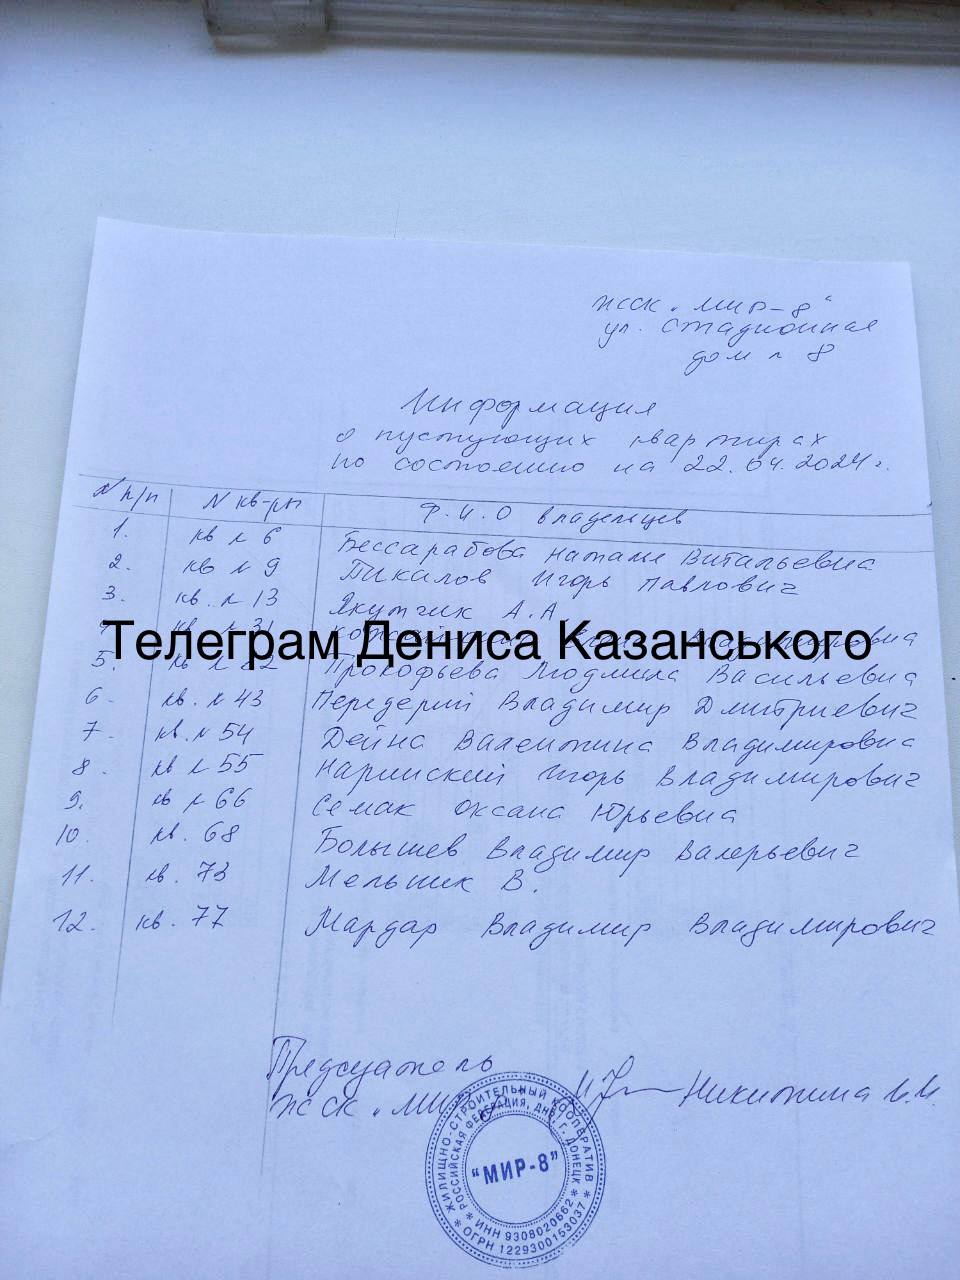 ЖСК „МИР-8"
ул. Стадионная
дом № 8
Информация
о пустующих квартирах
по состоянию на 22.04.2024г.
N п/п N кв-ры Ф.И.О владельцев
1. кв № 6 Бессарабова Наталья Витальевна
2. кв № 9 Пикалов Игорь Павлович
3. кв. № 13 Якутчик А.А
4. кв. № 31 Владимировна
Телеграм Дениса Казанського
5. кв № Прокофьева Людмила Васильевна
6. кв. № 43 Передерий Владимир Дмитриевич
7. кв. № 54 Дейна Валентина Владимировна
8. кв № 55 Наринский Игорь Владимирович
9. кв № 66 Семак Оксана Юрьевна
10. кв. 68 Болышев Владимир Валерьевич
11. кв. 73 Мельник В.
12. кв. 77 Мардар Владимир Владимирович
Председатель
ЖСК „МИР Никитина
ЖИЛИЩНО-СТРОИТЕЛЬНЫЙ КООПЕРАТИВ
РОССИЙСКАЯ ФЕДЕРАЦИЯ, ДНР, Г. ДОНЕЦК
"МИР-8"
ИНН 9308020662
ОГРН 1229300153037